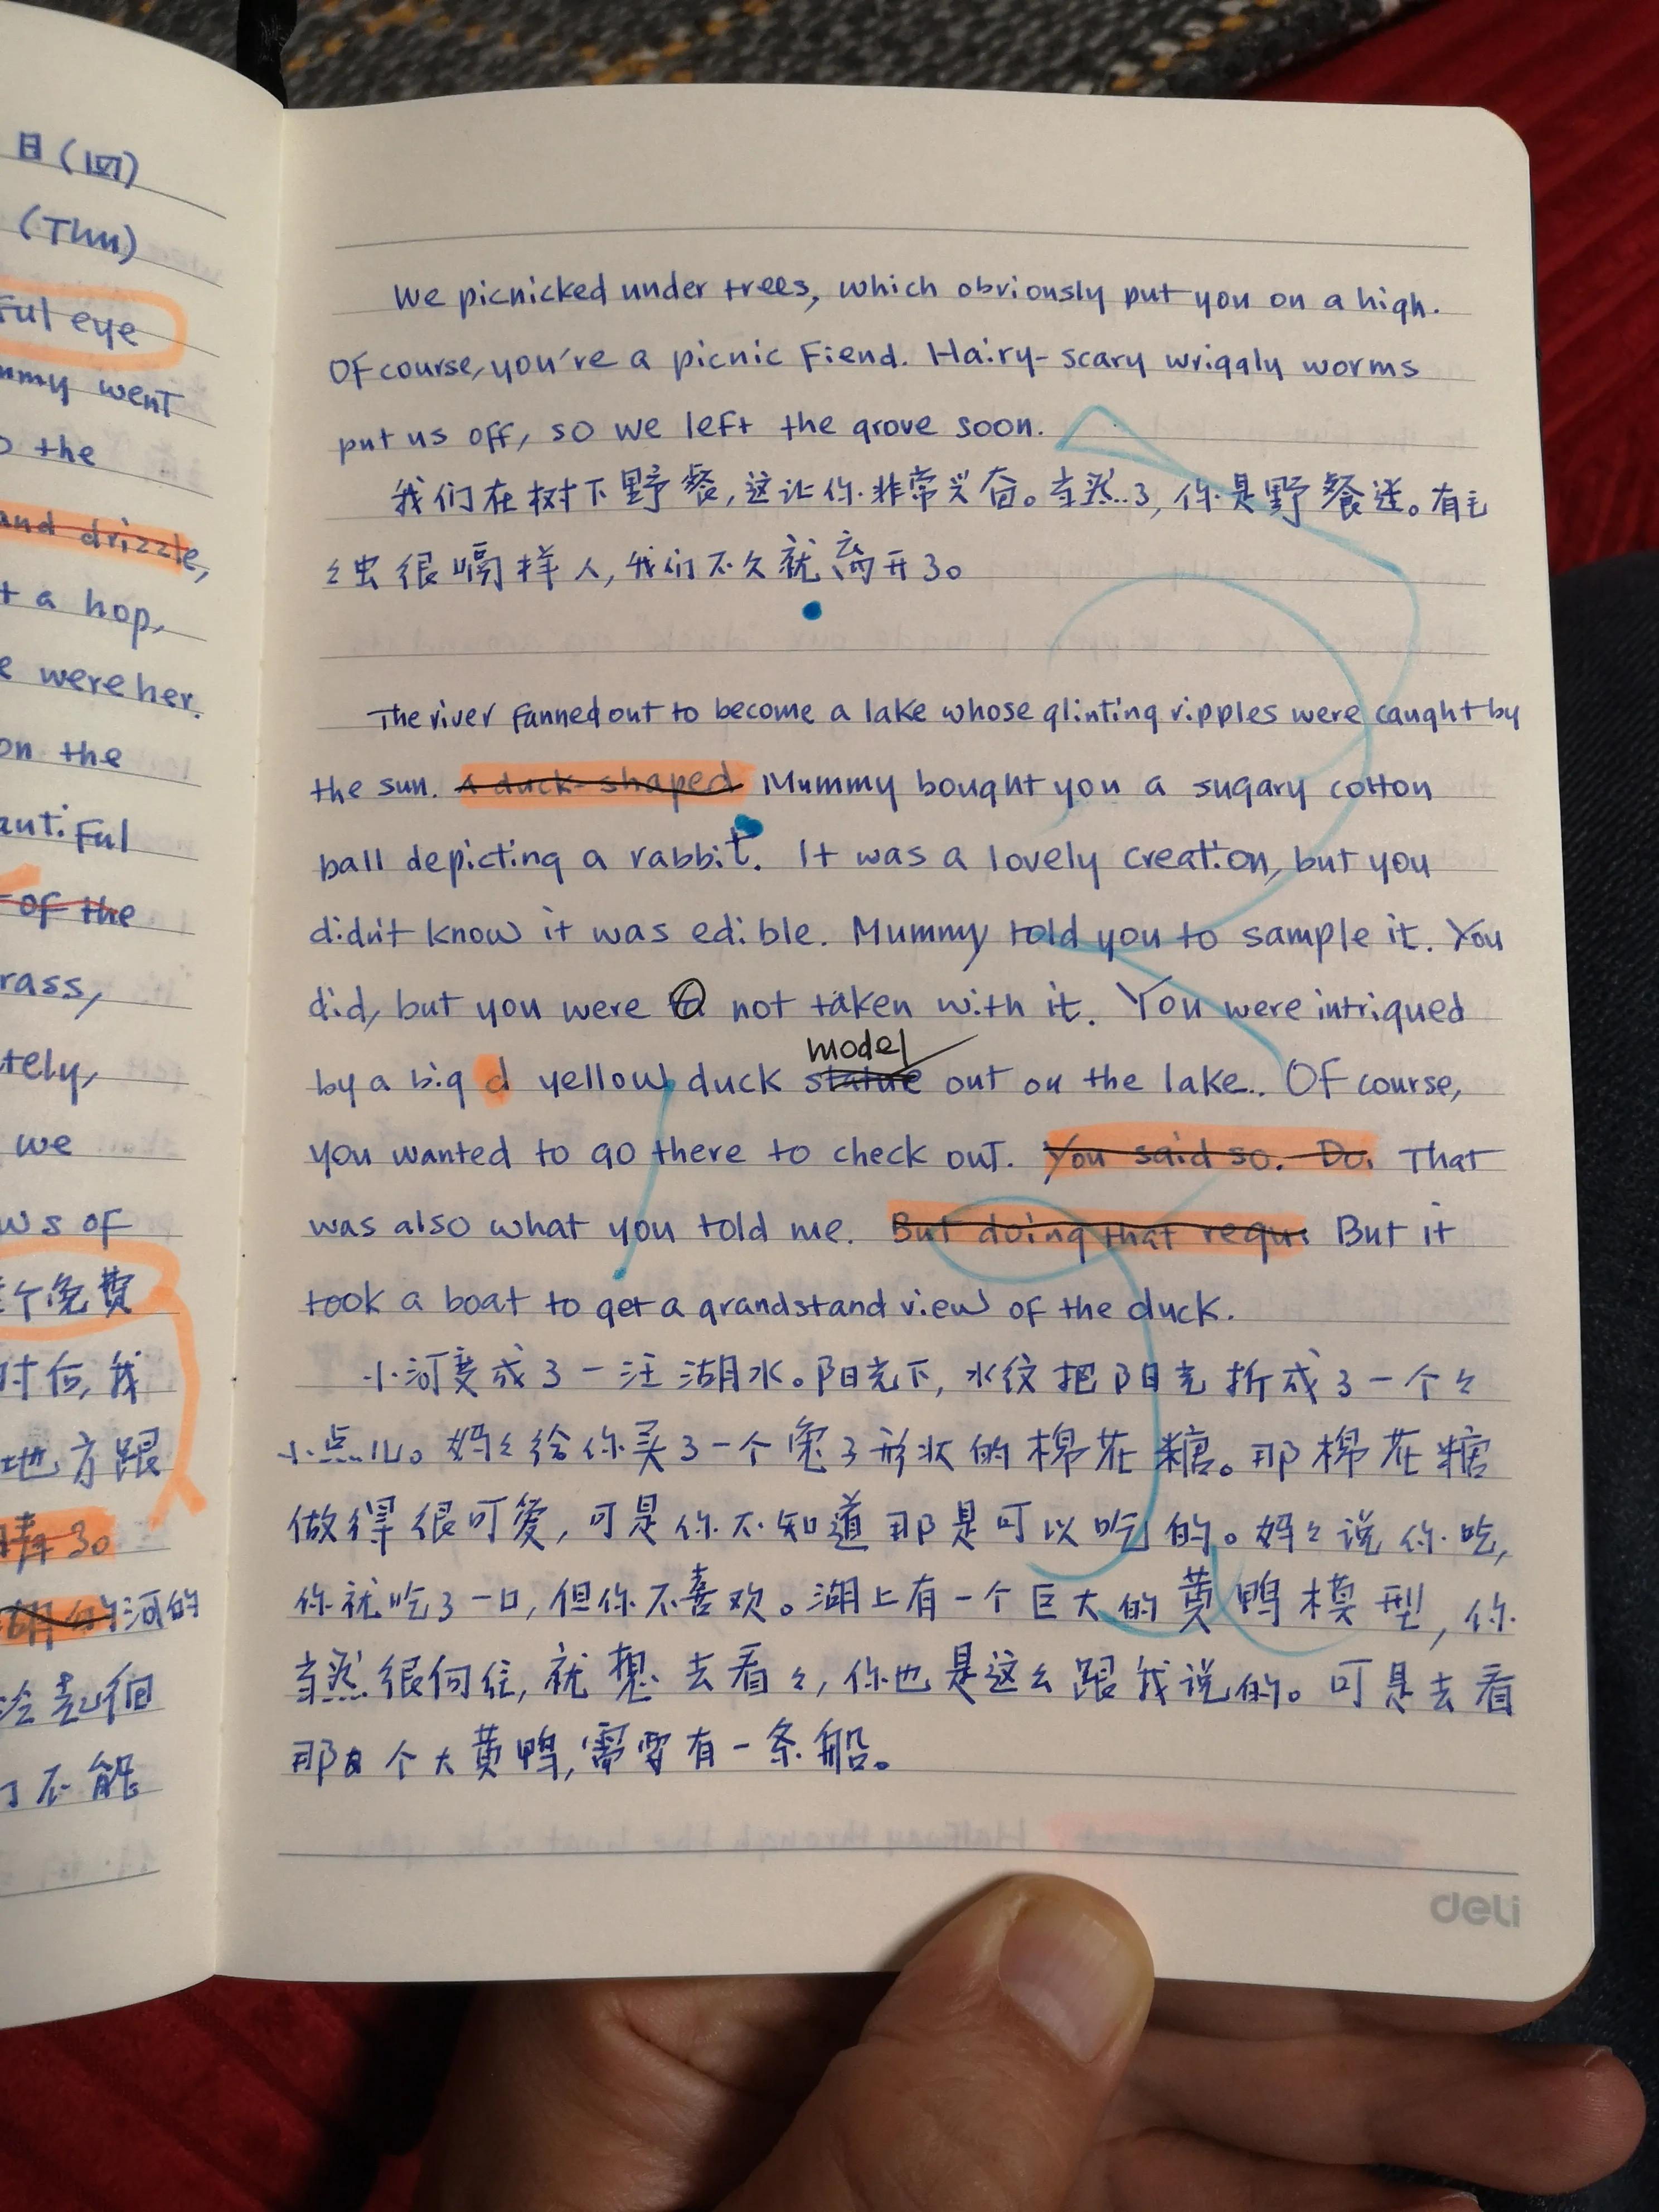 日(四)
(Thu)
ful eye
mmy went
the
and drizzle,
a hop,
were her.
on the
of the
rass,
tely,
we
ws of
个免费
时后,我
地方跟
河的
不能
We picnicked under trees, which obviously put you on a high.
Of course, you're a picnic fiend. Hairy-scary wriggly worms
put us off, so we left the grove soon.
我们在树下野餐,这让你非常兴奋。当然了,你是野餐迷。有毛
々虫很嗝样人,我们不久就离开了。
The river fanned out to become a lake whose glinting ripples were caught by
the sun. A duck-shaped Mummy bought you a sugary cotton
ball depicting a rabbit. It was a lovely creation, but you
didn't know it was edible. Mummy told you to sample it. You
did, but you were not taken with it. You were intrigued
model
by a big d yellow duck statue out on the lake. Of course,
you wanted to go there to check out. You said so. Do. That
was also what you told me. But doing that requi But it
took a boat to get a grandstand view of the duck.
小河变成了一汪湖水。阳光下,水纹把阳光折成了一个々
小点儿。妈々给你买了一个兔子形状的棉花糖。那棉花糖
做得很可爱,可是你不知道那是可以吃的。妈々说你吃,
你就吃了一口,但你不喜欢。湖上有一个巨大的黄鸭模型,你
当然很向往,就想去看々,你也是这么跟我说的。可是去看
那个大黄鸭,需要有一条船。
deli